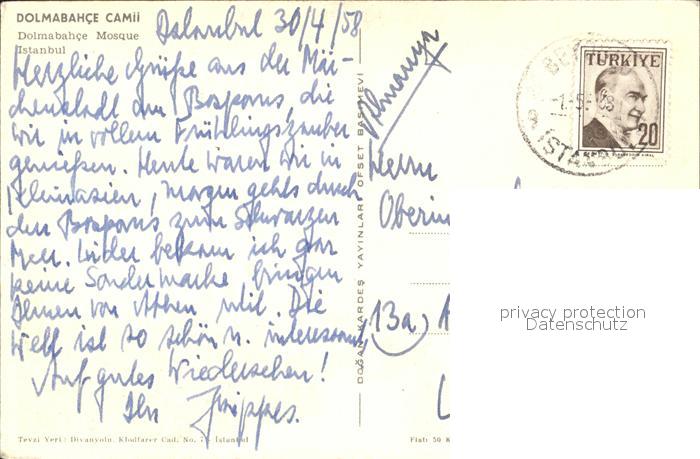 DOLMABAHÇE CAMİİ
Dolmabahçe Mosque
İstanbul
Istanbul 30/4/58
Herzliche Grüße aus der Mär-
chenstadt am Bosporus, die
wir in vollem Frühlingszauber
genießen. Heute waren wir in
Kleinasien, morgen gehts durch
den Bosporus zum Schwarzen
Meer. Leider bekam ich gar
keine Sondermarke bringen
Ihnen von Athen mit. Die
Welt ist so schön u. interessant,
Auf gutes Wiedersehen!
Ihr
Tevzi Yeri: Divanyolu, Klodfarer Cad. No. 7 - İstanbul
DOĞAN KARDEŞ YAYINLARI OFSET BASIMEVİ
Almanya
Herrn
Oberin
13a)
Fiatı 50 K
TÜRKİYE
20
İSTANBUL
privacy protection
Datenschutz